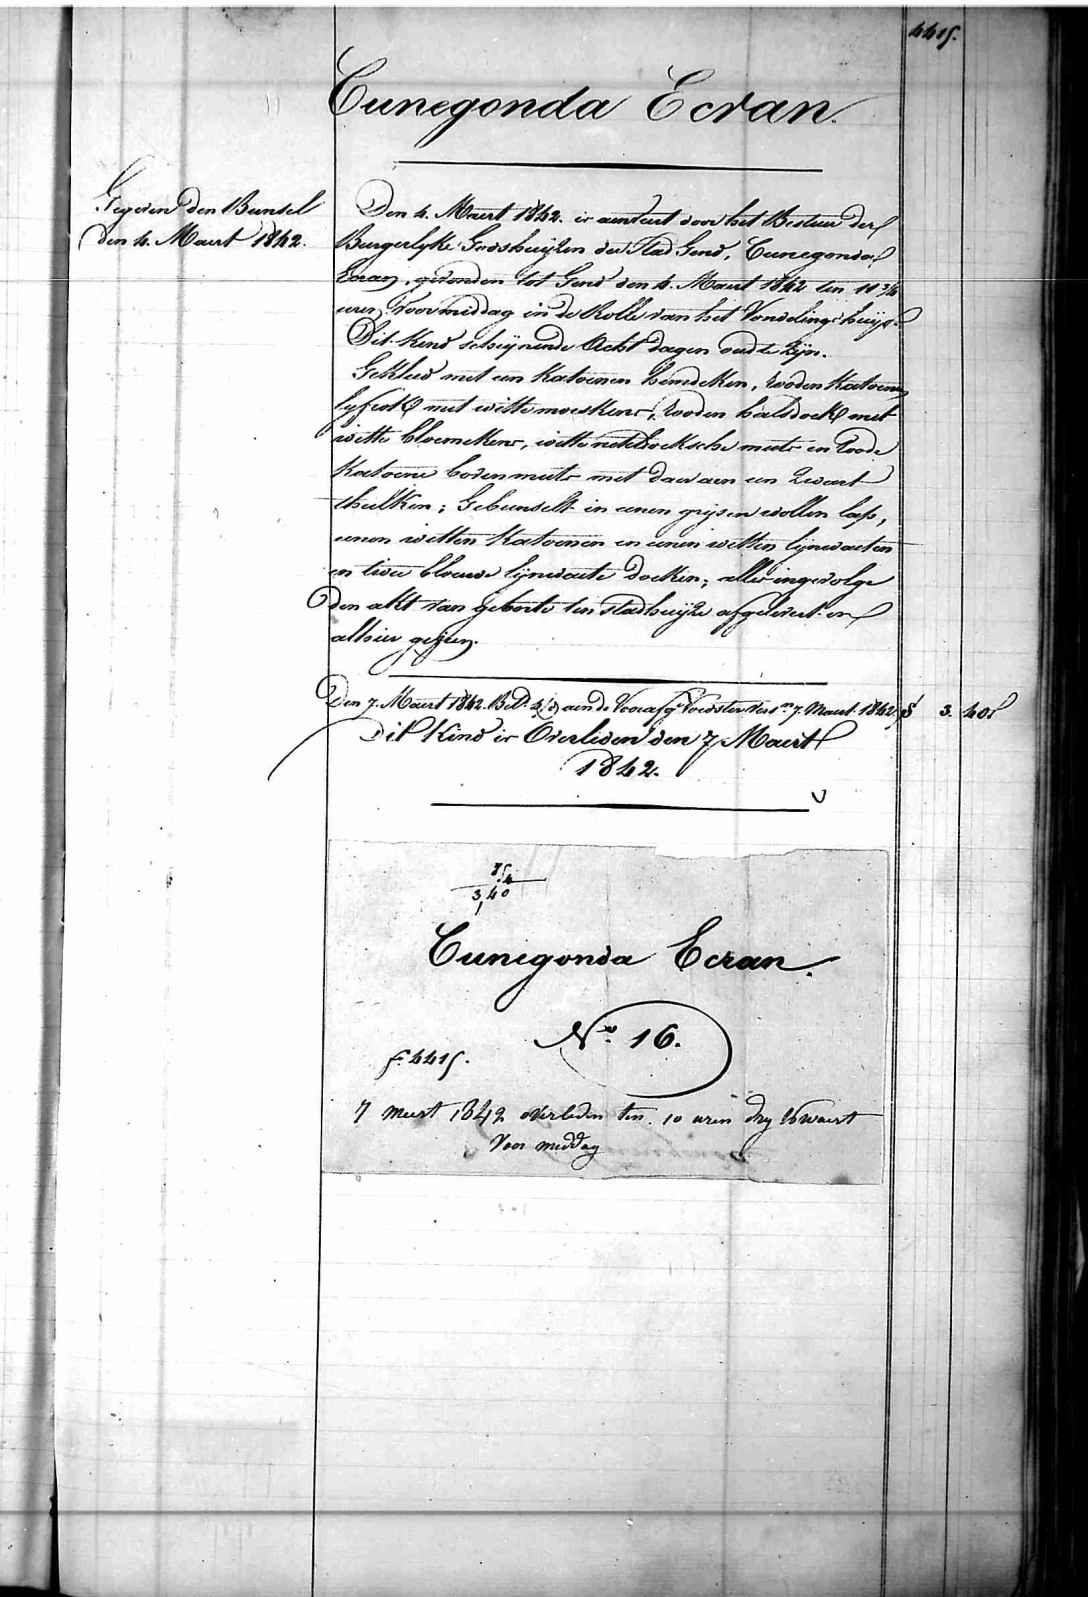 4415.
Cunegonda Ecran.
Gegeven den Bunsel
den 4. Maert 1842.
Den 4. Maert 1842. is aenveert door het Bestuer der
Burgerlyke Godshuijzen der Stad Gend, Cunegonda
Ecran, gevonden tot Gend den 4. Maert 1842 ten 11 3/4
uren Voormiddag in de Rolle van het Vondelingshuijs.
Dit Kind schijnende Acht dagen oud te Zijn.
Gekleed met een Katoenen hemdeken, rooden Katoenen
lyfrok met witte moeskens, rooden halsdoek met
witte bloemekens, witte neteldoeksche muts en Roode
Katoene bovenmuts met daer aen een Zwart
thulken; Gebunselt in eenen grijsen wollen lap,
eenen witten Katoenen en eenen witten lijnwaeten
en twee blauwe lijnwaete doeken; alles ingevolge
den akt van geboorte ten stadhuijze afgeleverd en
alhier gezien.
Den 7. Maert 1842. Bet. aen de Voorafg. Voedster 7. Maert 1842. 3. 40
Dit Kind is Overleden den 7 Maert
1842.
3,40
Cunegonda Ecran.
No. 16.
f. 4415.
7 meert 1842 overleden ten 10 uren dry kwaert
Voor middag